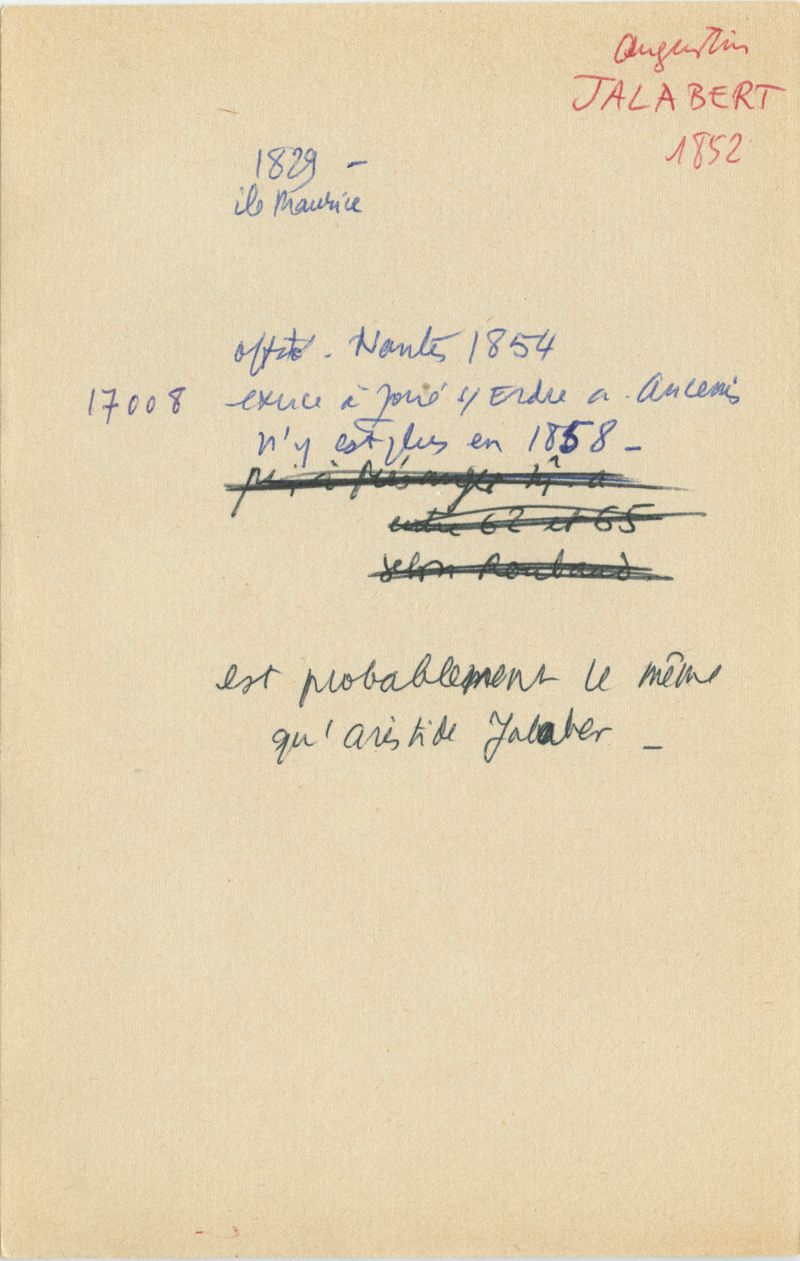 Augustin
JALABERT
1852
1829 –
ile Maurice
offté. Nantes 1854
17008 exerce à Joué s/ Erdre a. Ancenis
n'y est plus en 1858 –
puis à Mésanger
entre 62 et 65
selon Roubaud.
est probablement le même
qu'aristide Jalaber –